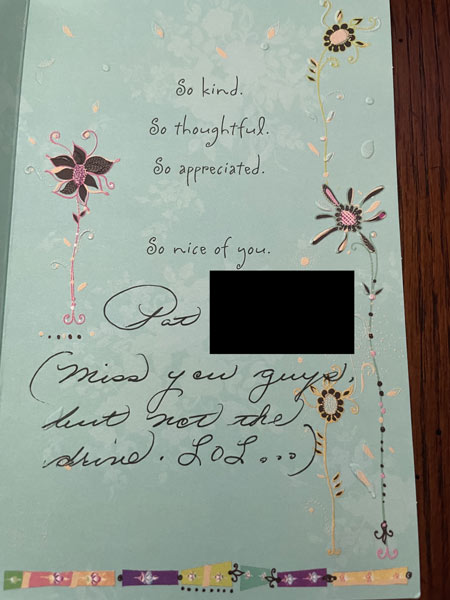 So kind.
So thoughtful.
So appreciated.
So nice of you.
Pat
(Miss you guys,
but not the
drive. LOL...)